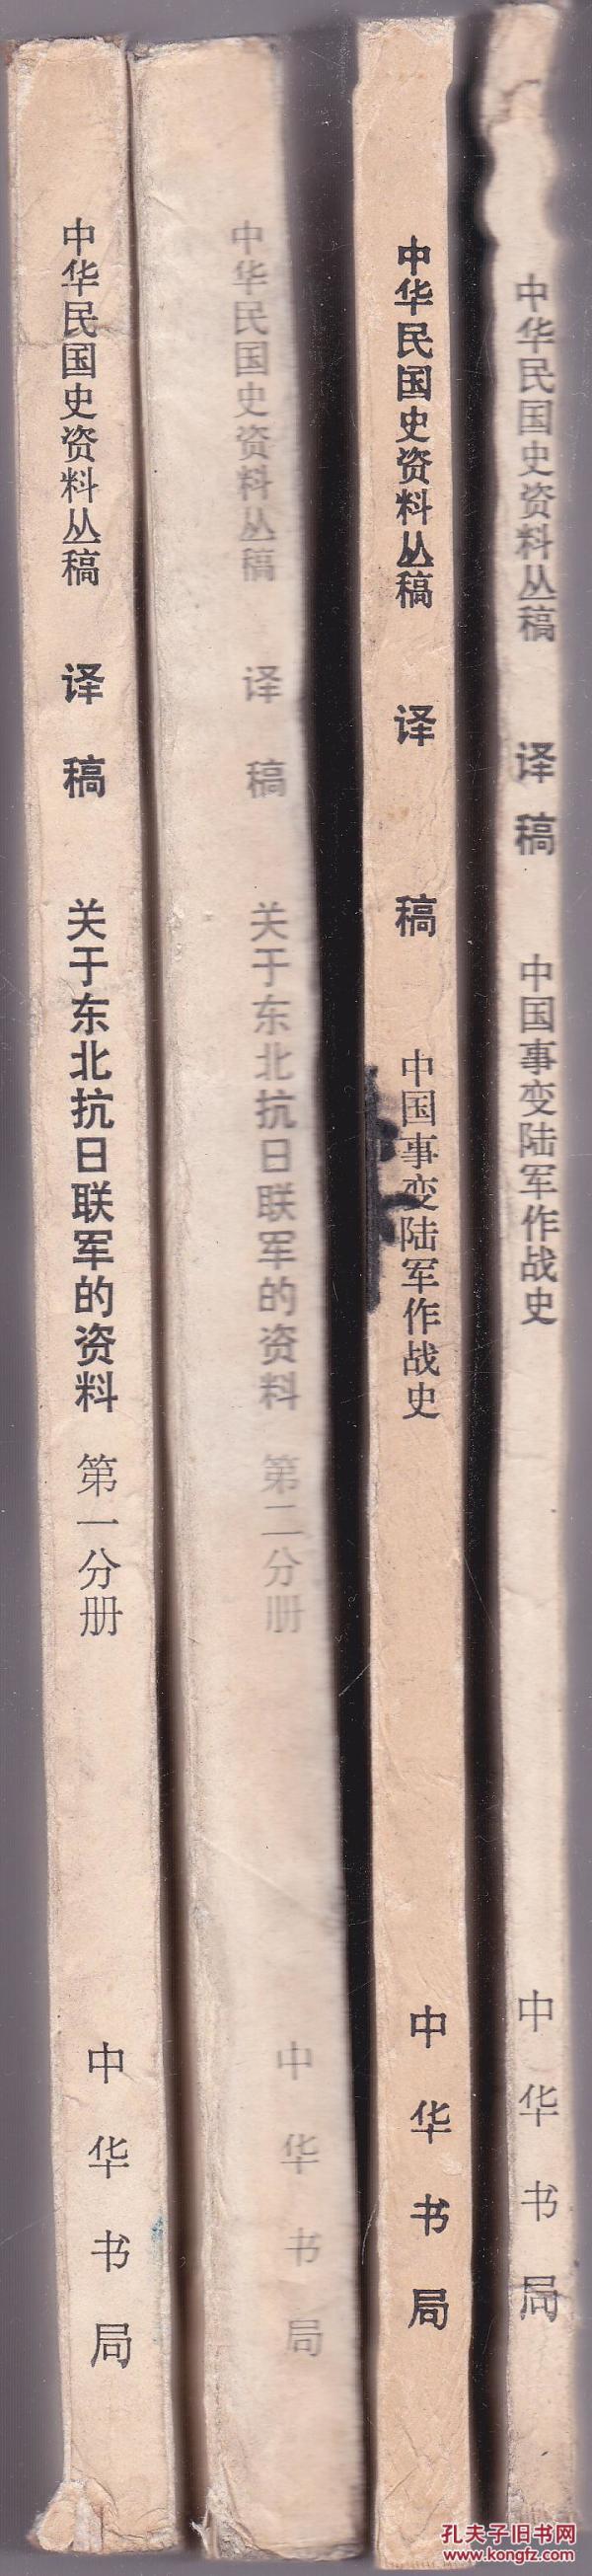 中华民国史资料丛稿
译稿
关于东北抗日联军的资料 第一分册
中华书局
中华民国史资料丛稿
译稿
关于东北抗日联军的资料 第二分册
中华书局
中华民国史资料丛稿
译稿
中国事变陆军作战史
中华书局
中华民国史资料丛稿
译稿
中国事变陆军作战史
中华书局
孔夫子旧书网
www.kongfz.com